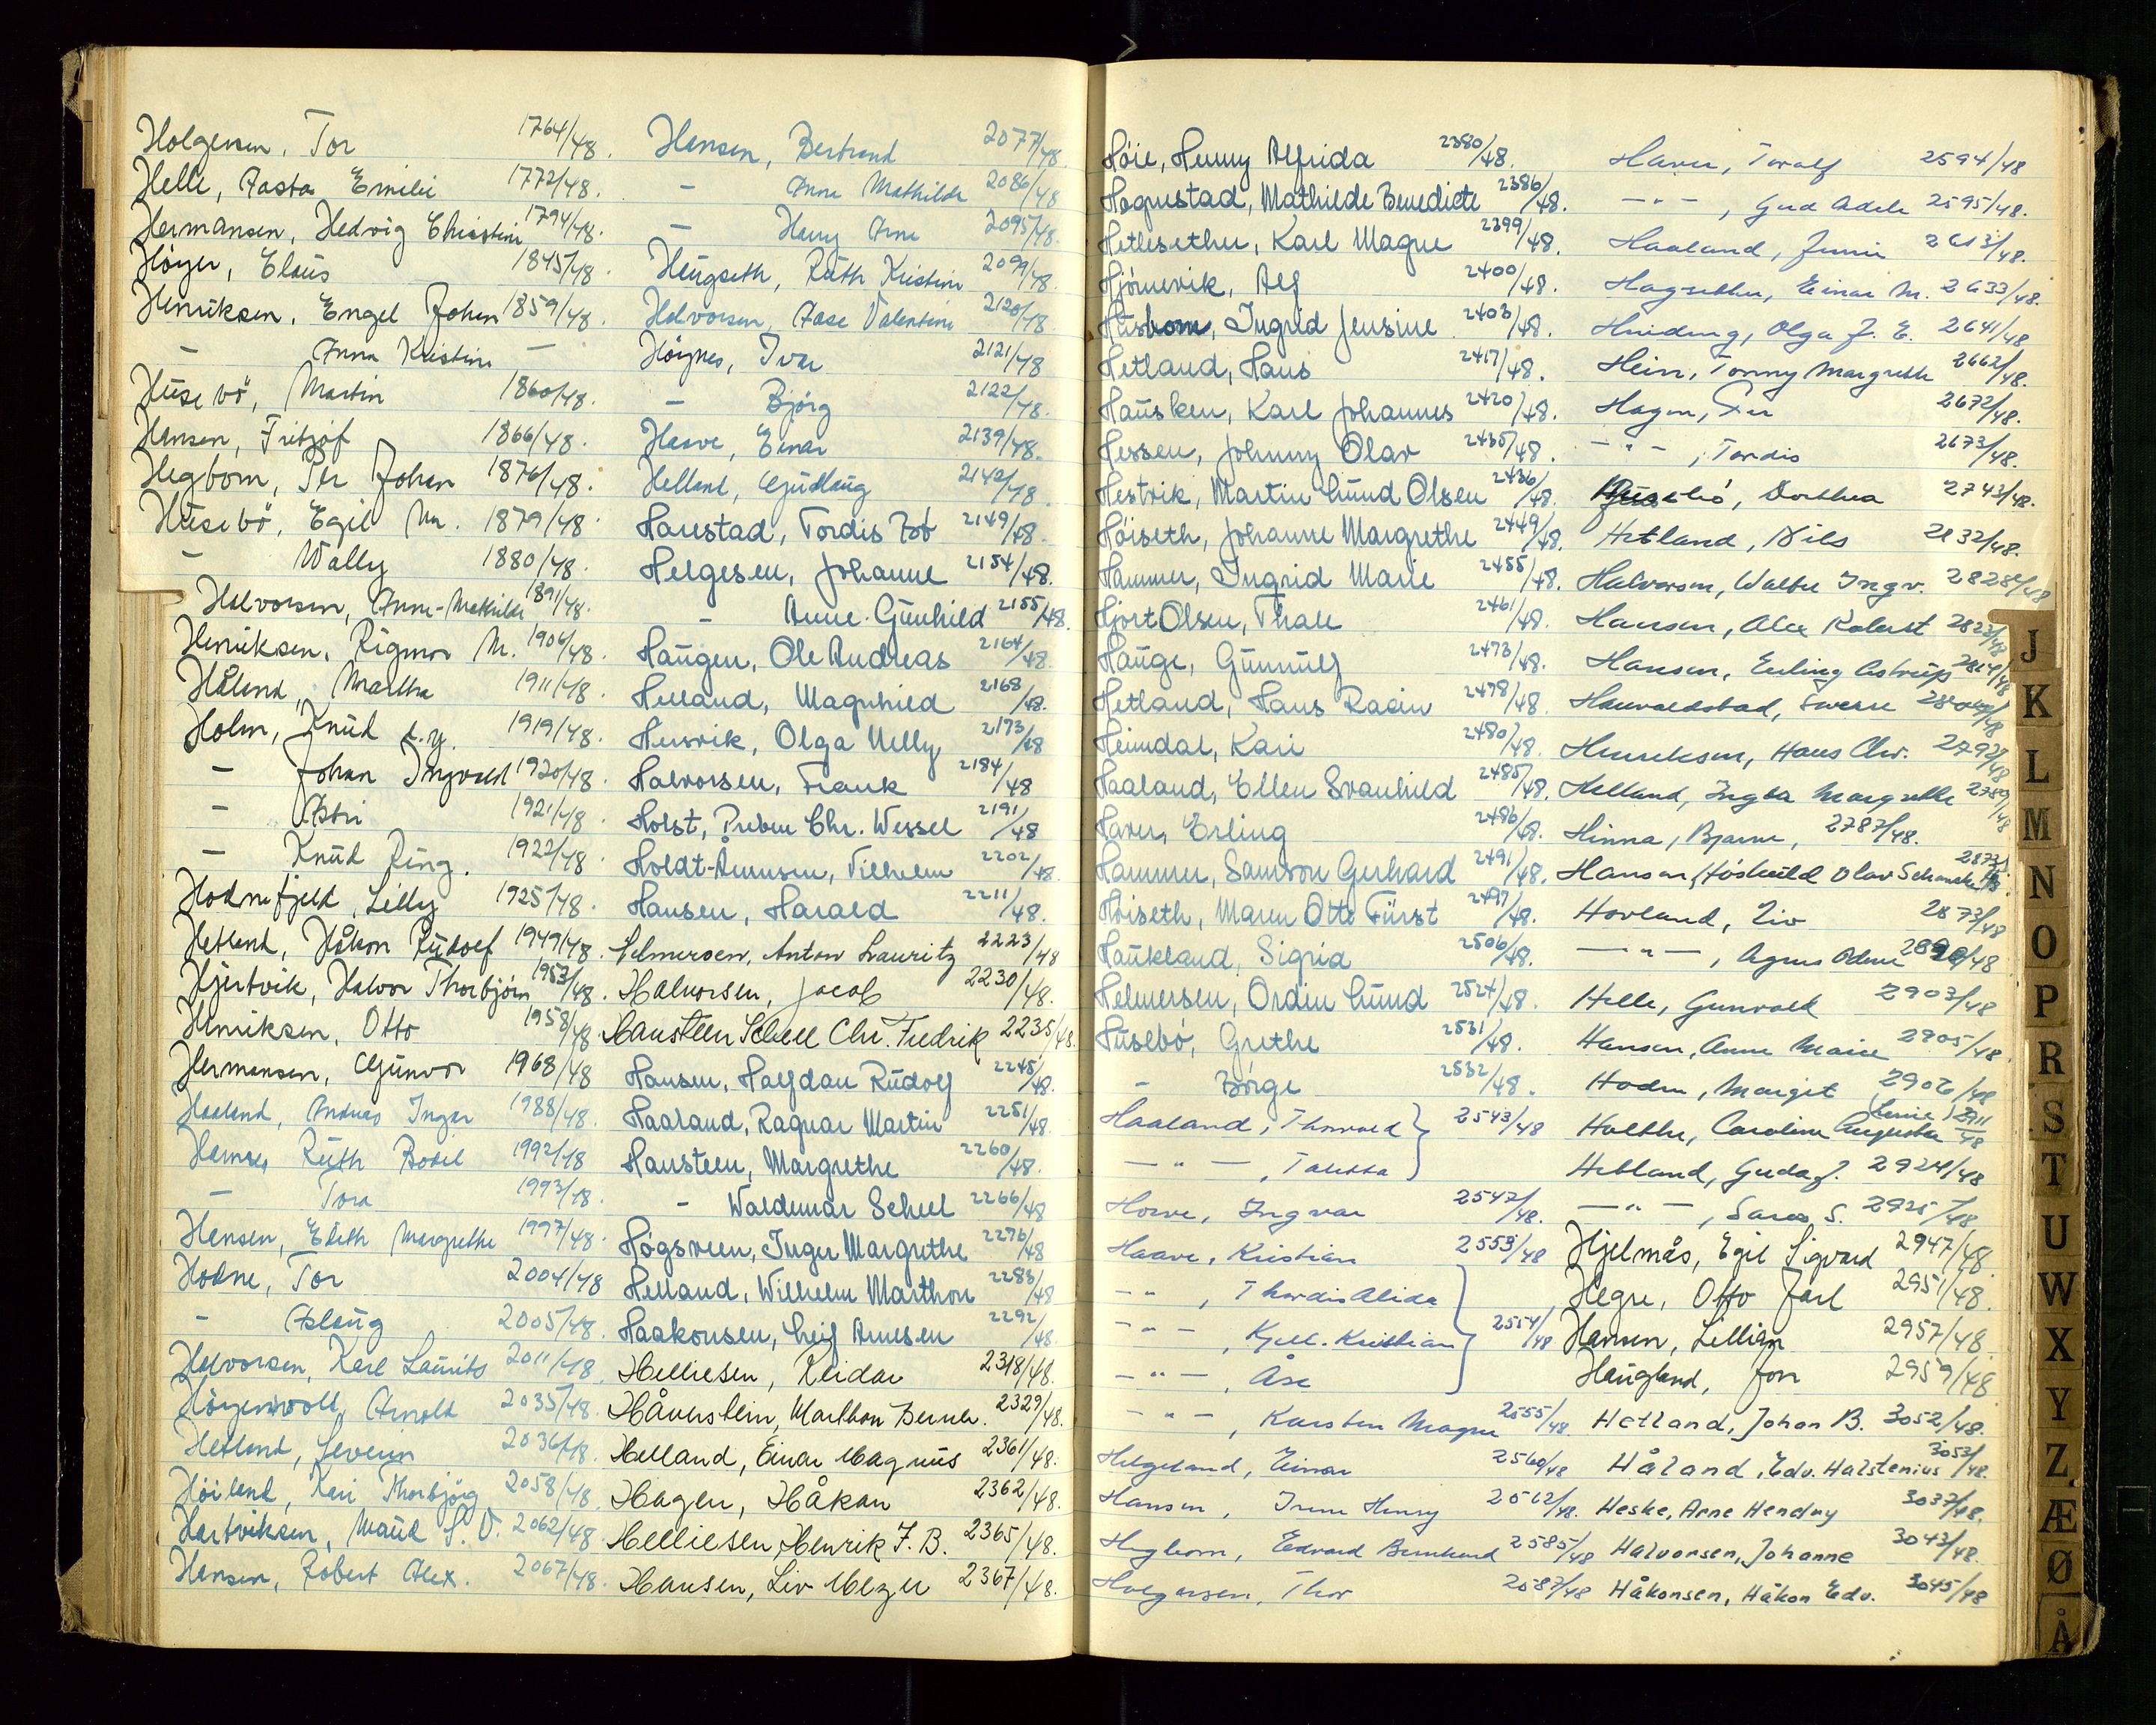 Holgersen, Tor 1764/48.
Helle, Aasta Emilie 1772/48.
Hermansen, Hedvig Christine 1794/48.
Höyer, Claus 1845/48
Henriksen, Engel Johan 1859/48.
— Anna Kristine —
Husebö, Martin 1860/48.
Hansen, Fritjof 1866/48.
Hegbom, Per Johan 1876/48.
Husebö, Egil M. 1879/48
— Wally 1880/48.
Halvorsen, Anne-Mathilde 1891/48.
Henriksen, Rigmor M. 1906/48.
Håland, Martha 1911/48.
Holm, Knud d.y. 1919/48.
— Johan Ingvald 1920/48.
— Astri 1921/48
— Knud Ring. 1922/48
Hodnefjeld, Lilly 1925/48.
Hetland, Håkon Rudolf 1949/48.
Hjertvik, Halvor Thorbjörn 1953/48.
Henriksen, Otto 1958/48
Hermansen, Gunvor 1968/48
Haaland, Andreas Ingar 1988/48.
Hamre, Ruth Bodil 1992/48
— Tora 1993/48.
Hansen, Edith Margrethe 1997/48.
Hodne, Tor 2004/48
— Aslaug 2005/48.
Halvorsen, Karl Laurits 2011/48
Hörgenvolt, Arnold 2035/48.
Hetland, Severin 2036/48.
Höiland, Kari Thorbjörg 2058/48
Hartviksen, Maud S. V. 2062/48
Hansen, Robert Alex. 2067/48.
Hansen, Bertrand 2077/48.
— Anne Mathilde 2086/48
— Harry Arne 2095/48.
Haugseth, Ruth Kristine 2099/48.
Halvorsen, Aase Valentine 2120/48
Höynes, Ivar 2121/48
— Björg 2122/48.
Haave, Einar 2139/48.
Helland, Gudlaug 2142/48
Harestad, Tordis Bö 2149/48
Helgesen, Johanne 2154/48.
— Anne Gunhild 2155/48.
Haugen, Ole Andreas 2164/48
Helland, Magnhild 2168/48.
Hersvik, Olga Nelly 2173/48
Halvorsen, Frank 2184/48
Holst, Preben Chr. Wessel 2191/48
Holdt-Ånensen, Vilhelm 2202/48
Hansen, Harald 2211/48.
Helmersen, Anton Lauritz 2223/48
Halvorsen, Jacob 2230/48.
Hausteen Scheel Chr. Fredrik 2235/48.
Hansen, Halfdan Rudolf 2245/48.
Haaland, Ragnar Martin 2251/48.
Hausteen, Margrethe 2260/48.
— Waldemar Scheel 2266/48
Høgsveen, Inger Margrethe 2276/48
Helland, Wilhelm Marthon 2283/48
Haakonsen, Leif Arnesen 2292/48.
Helliesen, Reidar 2318/48.
Håverstein, Marthon Bernh. 2329/48.
Helland, Einar Magnus 2361/48.
Hagen, Håkon 2362/48.
Helliesen, Henrik F. B. 2365/48.
Hansen, Liv Meyer 2367/48.
Höie, Henny Alfrida 2380/48.
Hognestad, Mathilde Benedicte 2386/48.
Hetlesether, Karl Magne 2399/48.
Hjörnevik, Alf 2400/48.
Husbom, Ingrid Jensine 2403/48.
Hetland, Hans 2417/48.
Hausken, Karl Johannes 2420/48.
Hessen, Johnny Olav 2435/48.
Hestvik, Martin Lund Olsen 2436/48.
Höiseth, Johanne Margrethe 2449/48.
Hammer, Ingrid Marie 2455/48.
Hjort Olsen, Thale 2461/48.
Hauge, Gunnulf 2473/48.
Hetland, Hans Racin 2478/48.
Heimdal, Kari 2480/48.
Haaland, Ellen Svanhild 2485/48.
Haver, Erling 2486/48.
Hammer, Samson Gerhard 2491/48.
Höiseth, Maren Otte Fürst 2497/48.
Haukland, Sigrid 2506/48.
Helmersen, Ordin Lund 2524/48.
Husebö, Grethe 2531/48.
— Börge 2532/48.
Haaland, Thorvald } 2543/48
— " —, Talette
Howe, Ingvar 2547/48.
Haave, Kristian 2553/48
— " —, Thordis Alida
— " —, Kjell-Kristian } 2554/48
— " —, Åse
— " —, Karsten Magne 2555/48.
Helgeland, Einar 2560/48
Hansen, Irene Henny 2562/48.
Hegbom, Edvard Bernhard 2585/48
Holgersen, Thor 2587/48
Haver, Torolf 2594/48
— " —, Gud Adele 2595/48.
Haaland, Jenni 2613/48.
Hagsether, Einar M. 2633/48.
Hniding, Olga J. E. 2641/48
Hein, Tonny Margrethe 2662/48.
Hagen, Per 2672/48.
— " —, Tordis 2673/48.
Husebö, Dorthea 2743/48.
Hetland, Nils 2832/48.
Halvorsen, Walter Ingv. 2828/48
Hansen, Alex Robert 2823/48
Hansen, Erling Astrup 2814/48
Hauvaldstad, Sverre 2804/48
Henriksen, Hans Chr. 2792/48
Helland, Ingba Margrethe 2789/48
Hinna, Bjarne, 2787/48.
Hansen, Höskuld Olav Schanche
Hovland, Liv 2873/48
— " —, Agnes Odine
Helle, Gunvald 2903/48
Hansen, Anne Marie 2905/48
Hodne, Margit 2906/48
Holthe, Caroline Augusta (Lovise) 2911/48
Hetland, Guda J. 2924/48
— " —, Sara S. 2925/48
Hjelmås, Egil Sigvard 2947/48
Hegre, Otto Jarl 2951/48.
Hansen, Lillian 2957/48
Haugland, Jon 2959/48
Hetland, Johan B. 3052/48.
Håland, Edv. Halstenius 3053/48.
Heske, Arne Henday 3037/48.
Halvorsen, Johanne 3043/48.
Håkonsen, Håkon Edv. 3045/48
J
K
L
M
N
O
P
R
S
T
U
W
X
Y
Z
Æ
Ø
Å